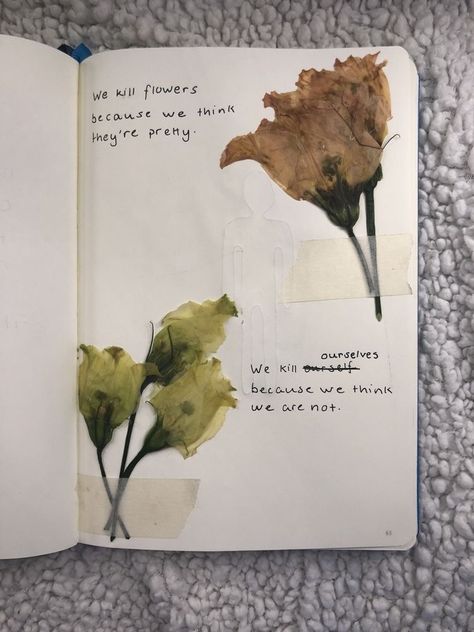 We kill flowers
because we think
they're pretty.
ourselves
We kill ourself
because we think
we are not.